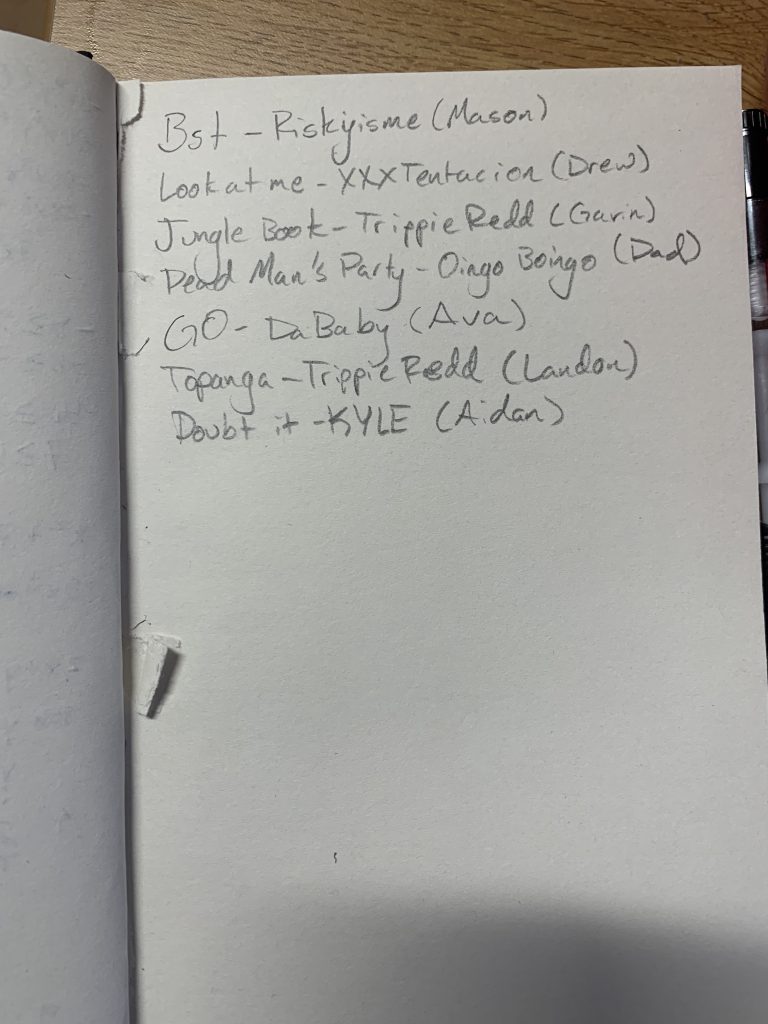 Bst - Riskyisme (Mason)
Look at me - XXXTentacion (Drew)
Jungle Book - Trippie Redd (Gavin)
Dead Man's Party - Oingo Boingo (Dad)
GO - DaBaby (Ava)
Topanga - Trippie Redd (Landon)
Doubt it - KYLE (Aidan)